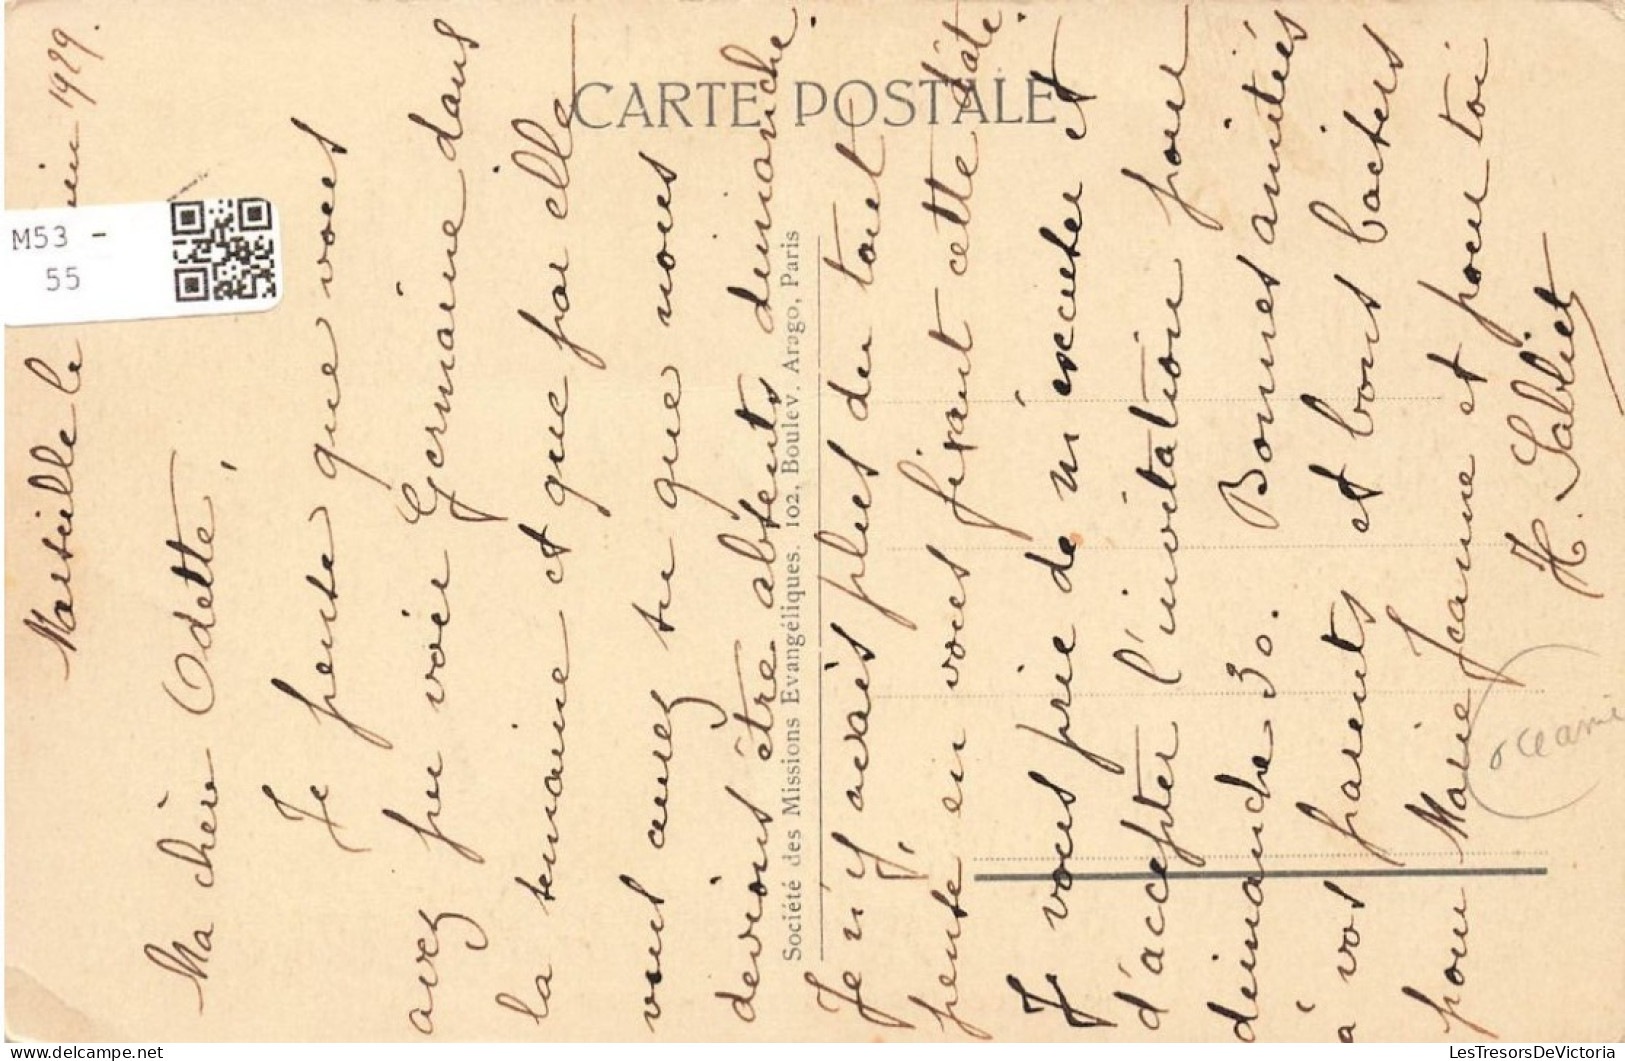 Marseille le juin 1929.
Ma chère Odette,
Je pense que vous
avez pu voir Germaine dans
la semaine et que par elle
vous aurez su que nous
devions être absents dimanche.
Je n'y avais plus du tout
pensé en vous fixant cette date.
Je vous prie de m'excuser et
d'accepter l'invitation pour
dimanche 30. Bonnes amitiés
à vos parents et bons baisers
pour Marie Jeanne et pour toi
H. Sabliet
CARTE POSTALE
Société des Missions Evangéliques. 102, Boulev. Arago, Paris
Océanie
M53 -
55
LesTresorsDeVictoria